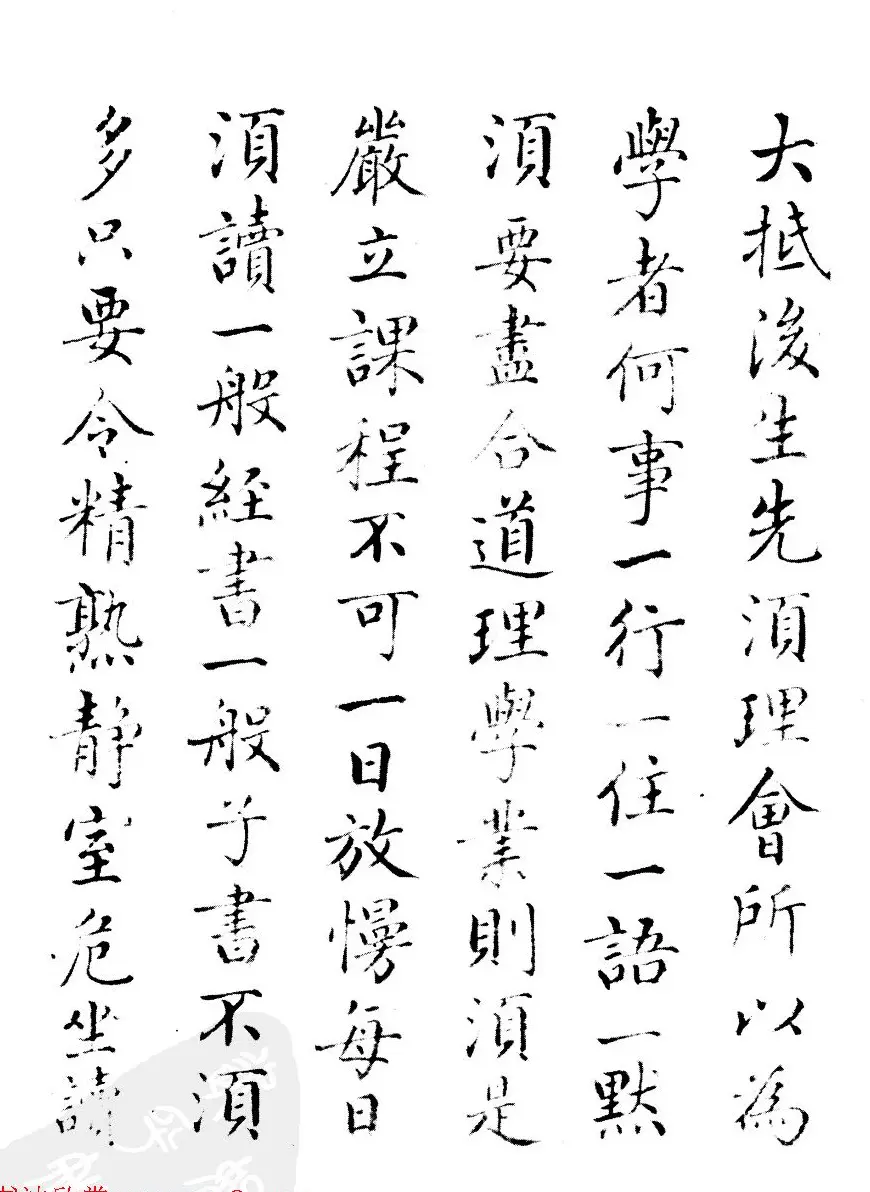 大抵後生先須理會所以為
學者何事一行一住一語一默
須要盡合道理學業則須是
嚴立課程不可一日放慢每日
須讀一般經書一般子書不須
多只要令精熟静室危坐讀